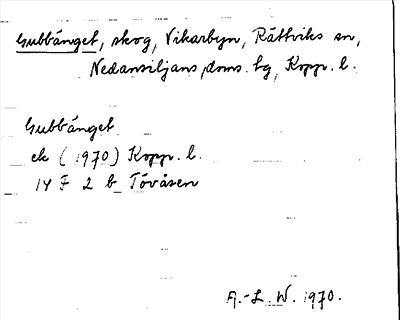 Gubbänget, skog, Vikarbyn, Rättviks sn,
Nedansiljans doms. tg, Kopp. l.
Gubbänget
ek (1970) Kopp. l.
14 F 2 b Tövåsen
A.-L. W. 1970.